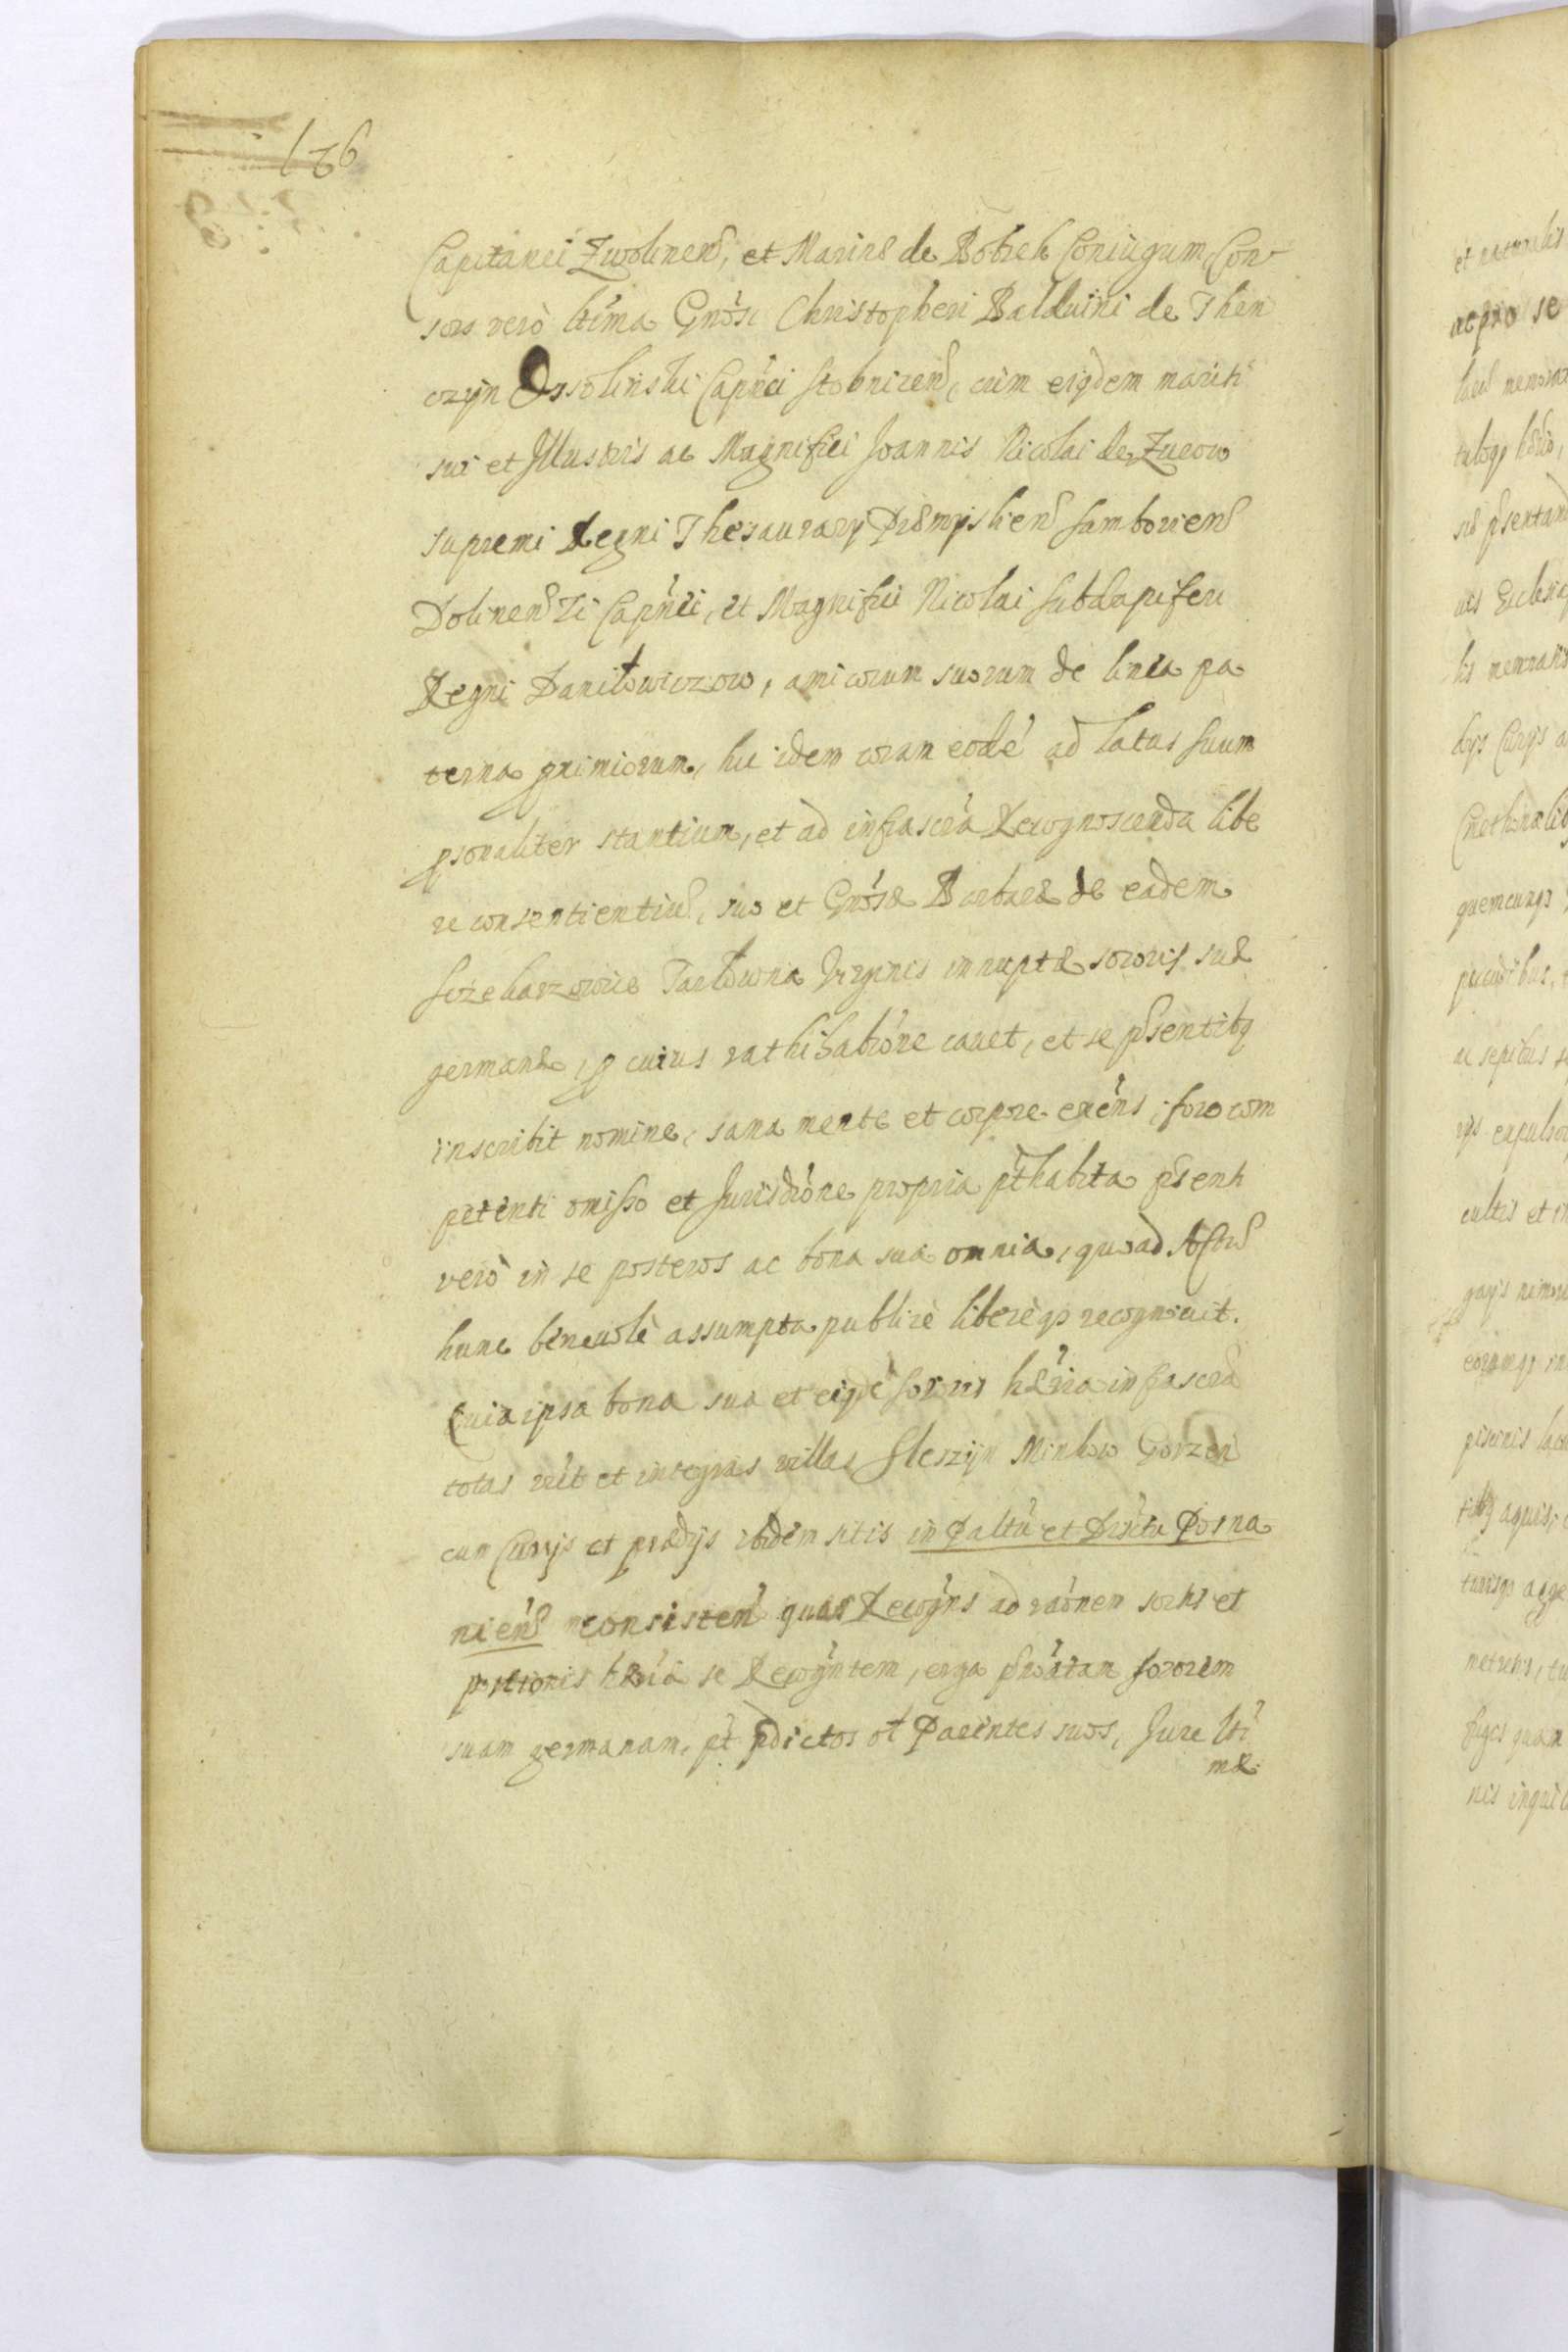 176
Capitanei Zwolinens, et Marinæ de Bobrek Coniugum, Con-
sors verò ltíma Gnósi Christopheri Balduini de Then
czyn Ossolinski Capnéi Stobnicens, cum eiqdem mariti
sui et Illustris ac Magnifici Joannis Nicolai de Zurow
supremi Regni Thesaurarÿ Præmysliens Samboriens
Dolinens Zi Capnéi, et Magnifici Nicolai Subdapiferi
Regni Daniłowiczow, amicorum suorum de linea pa
terna pximiorum, hic idem coram eodé ad latus suum
psonaliter stantium, et ad infrascrá Recognoscenda libe
re consentientiu, suo et Gnósæ Barbaræ de eadem
Sczekarzowice Tarłowna Virginis innuptæ sororis suæ
germanæ, p cuius rathihabióne cavet, et se psentibq
inscribit nomine, sana mente et corpore exéns, foro com
petenti omisso et Jurisdióne propria pthabita psenti
verò in se posteros ac bona sua omnia, quoad Actu
hunc benevolè assumpta publicè liberèqz recognovit.
Quia ipsa bona sua et eiqdé sororis hæria infrascra
totas utit et integras villas Sleszÿn Minkow Gorzen
cum Curÿs et prædÿs ibidem sitis in Paltú et Disctu Posna
niéns consisten quas Recogns ad raónem sortis et
portionis hæriá se Recogntem, erga pnóatam sororem
suam germanam, pt pdictos ol Parentes suos, Jure lti
mæ